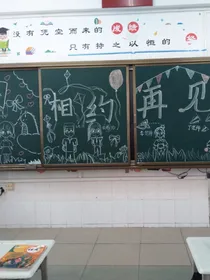 没有凭空而来的成绩
只有持之以恒的
相约
再见